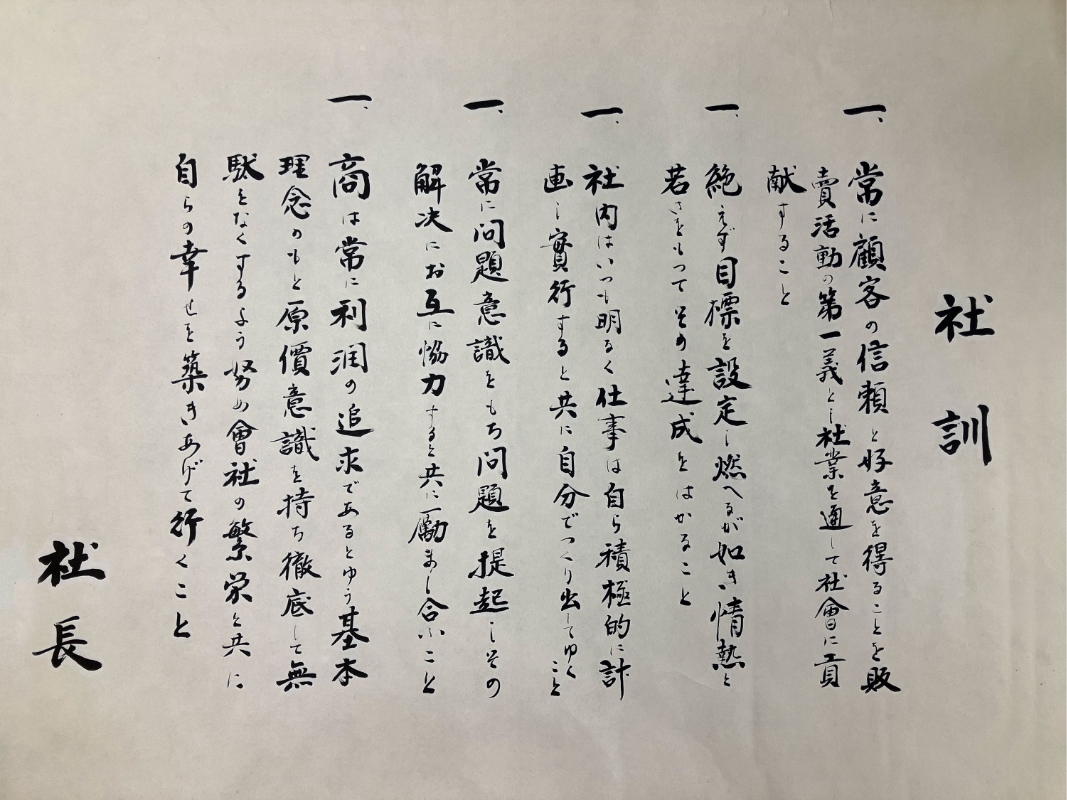 社訓
一、常に顧客の信頼と好意を得ることを販
賣活動の第一義とし社業を通して社會に貢
献すること
一、絶えず目標を設定し燃へるが如き情熱と
若さをもつてその達成をはかること
一、社内はいつも明るく仕事は自ら積極的に計
画し實行すると共に自分でつくり出してゆくこと
一、常に問題意識をもち問題を提起しその
解決にお互に協力すると共に励まし合ふこと
一、商は常に利潤の追求であるとゆう基本
理念のもと原價意識を持ち徹底して無
駄をなくするよう努め會社の繁栄と共に
自らの幸せを築きあげて行くこと
社長